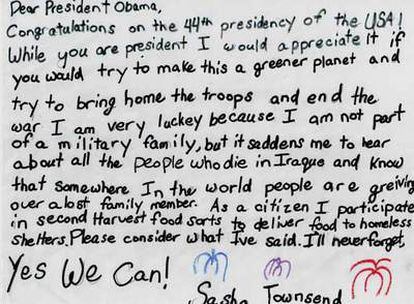 Dear President Obama,
Congratulations on the 44th presidency of the USA!
While you are president I would appreciate it if
you would try to make this a greener planet and
try to bring home the troops and end the
war I am very luckey because I am not part
of a military family, but it saddens me to hear
about all the people who die in Iraque and know
that somewhere in the world people are greiving
over a lost family member. As a citizen I participate
in second Harvest food sorts to deliver food to homeless
shelters. Please consider what I've said. I'll never forget,
Yes We Can!
Sasha Townsend